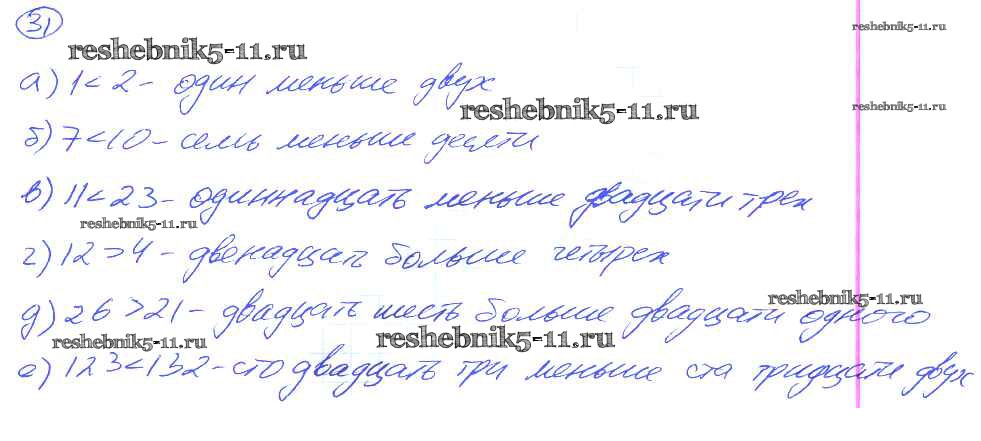 31
reshebnik5-11.ru
reshebnik5-11.ru
а) 1 < 2 - один меньше двух
reshebnik5-11.ru
reshebnik5-11.ru
б) 7 < 10 - семь меньше десяти
в) 11 < 23 - одиннадцать меньше двадцати трех
reshebnik5-11.ru
г) 12 > 4 - двенадцать больше четырех
reshebnik5-11.ru
д) 26 > 21 - двадцать шесть больше двадцати одного
reshebnik5-11.ru
reshebnik5-11.ru
е) 123 < 132 - сто двадцать три меньше ста тридцати двух